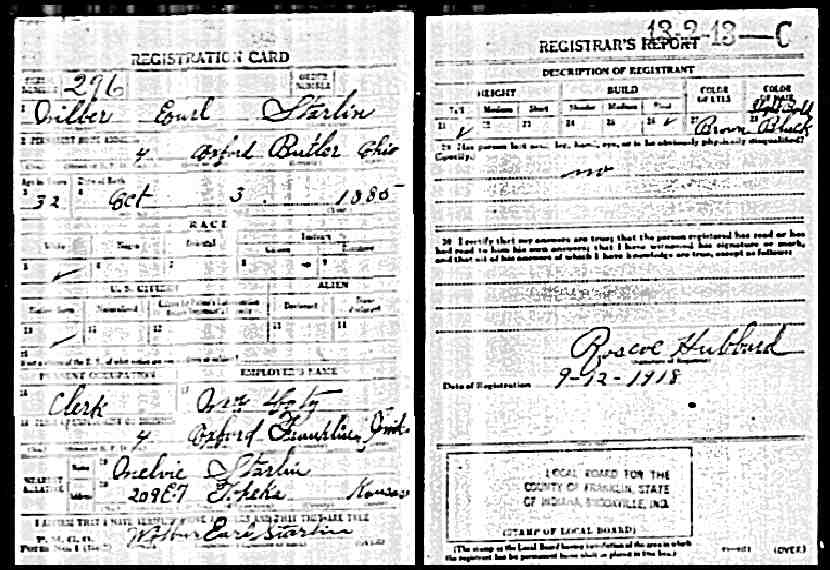 REGISTRATION CARD
SERIAL NUMBER 296 ORDER NUMBER
1 Wilber Earl Starlin
2 PERMANENT HOME ADDRESS
4 Oxford Butler Ohio
Age in Years Date of Birth
3 32 4 Oct 3 1885
RACE
White Negro Oriental Indian
5 6 7 8 9
U. S. CITIZEN ALIEN
Native Born Naturalized Declarant
10 11 12 13 14
15
PRESENT OCCUPATION EMPLOYER'S NAME
16 Clerk 17
4 Oxford Franklin
NEAREST RELATIVE Name 19 Melvie Starlin
Address 20 209 E 7 Topeka Kansas
I AFFIRM THAT I HAVE VERIFIED ABOVE ANSWERS AND THAT THEY ARE TRUE
P. M. G. O.
Form No. 1 (Red) Wilber Earl Starlin (OVER)
13-2-13—C
REGISTRAR'S REPORT
DESCRIPTION OF REGISTRANT
HEIGHT BUILD COLOR OF EYES COLOR OF HAIR
Tall Medium Short Slender Medium Stout
21 22 23 24 25 26 27 Brown 28 Black
29 Has person lost arm, leg, hand, eye, or is he obviously physically disqualified?
(Specify.)
no
30 I certify that my answers are true; that the person registered has read or has
had read to him his own answers; that I have witnessed his signature or mark,
and that all of his answers of which I have knowledge are true, except as follows:
Roscoe Hubbard
Date of Registration 9-12-1918
LOCAL BOARD FOR THE
COUNTY OF FRANKLIN, STATE
OF INDIANA, BROOKVILLE, IND.
(STAMP OF LOCAL BOARD)
(The stamp of the Local Board having jurisdiction of the area in which
the registrant has his permanent home shall be placed in this box.)
(OVER)